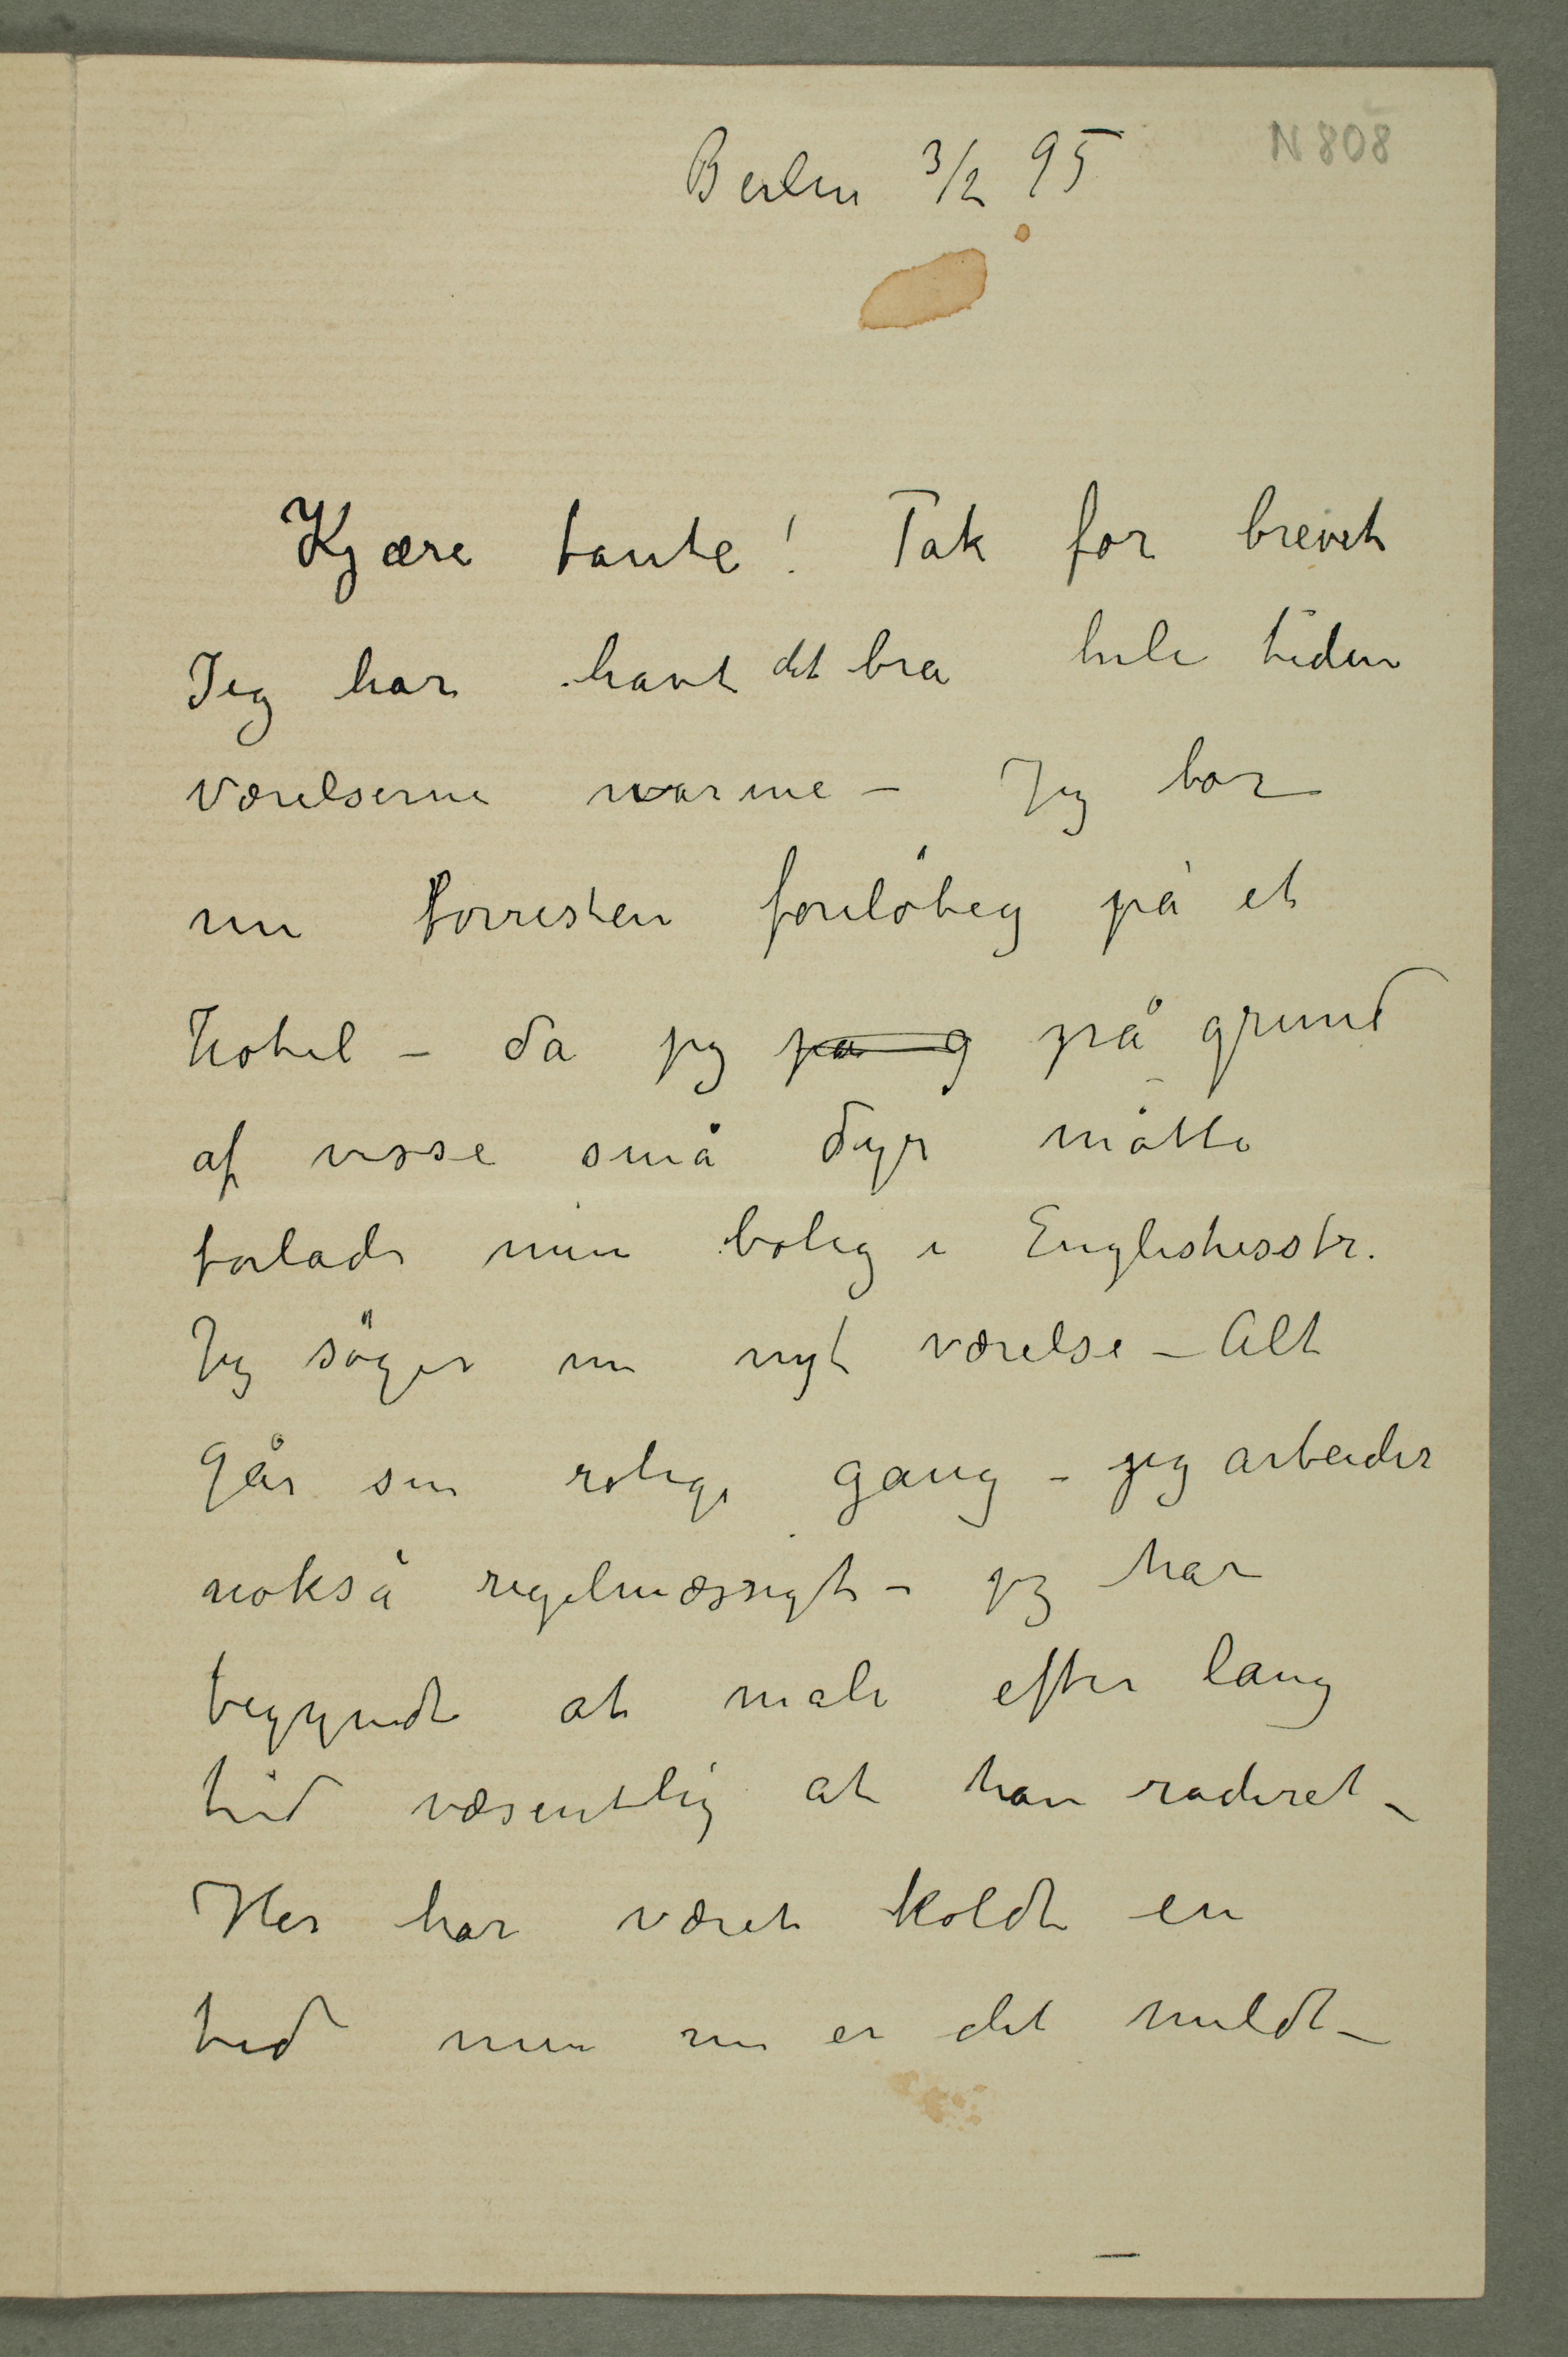 N 808
Berlin 3/2 95
Kjære tante! Tak for brevet
Jeg har havt det bra hele tiden
værelserne varme – Jeg bor
nu forresten foreløbig på et
Hotel – da jeg pa g på grund
af visse små dyr måtte
forlade min bolig i Englishesstr.
Jeg söger nu nyt værelse – Alt
går sin rolige gang – jeg arbeider
nokså regelmæssigt – jeg har
begyndt at male efter lang
tid væsentlig at have raderet –
Her har været koldt en
tid men nu er det mildt –